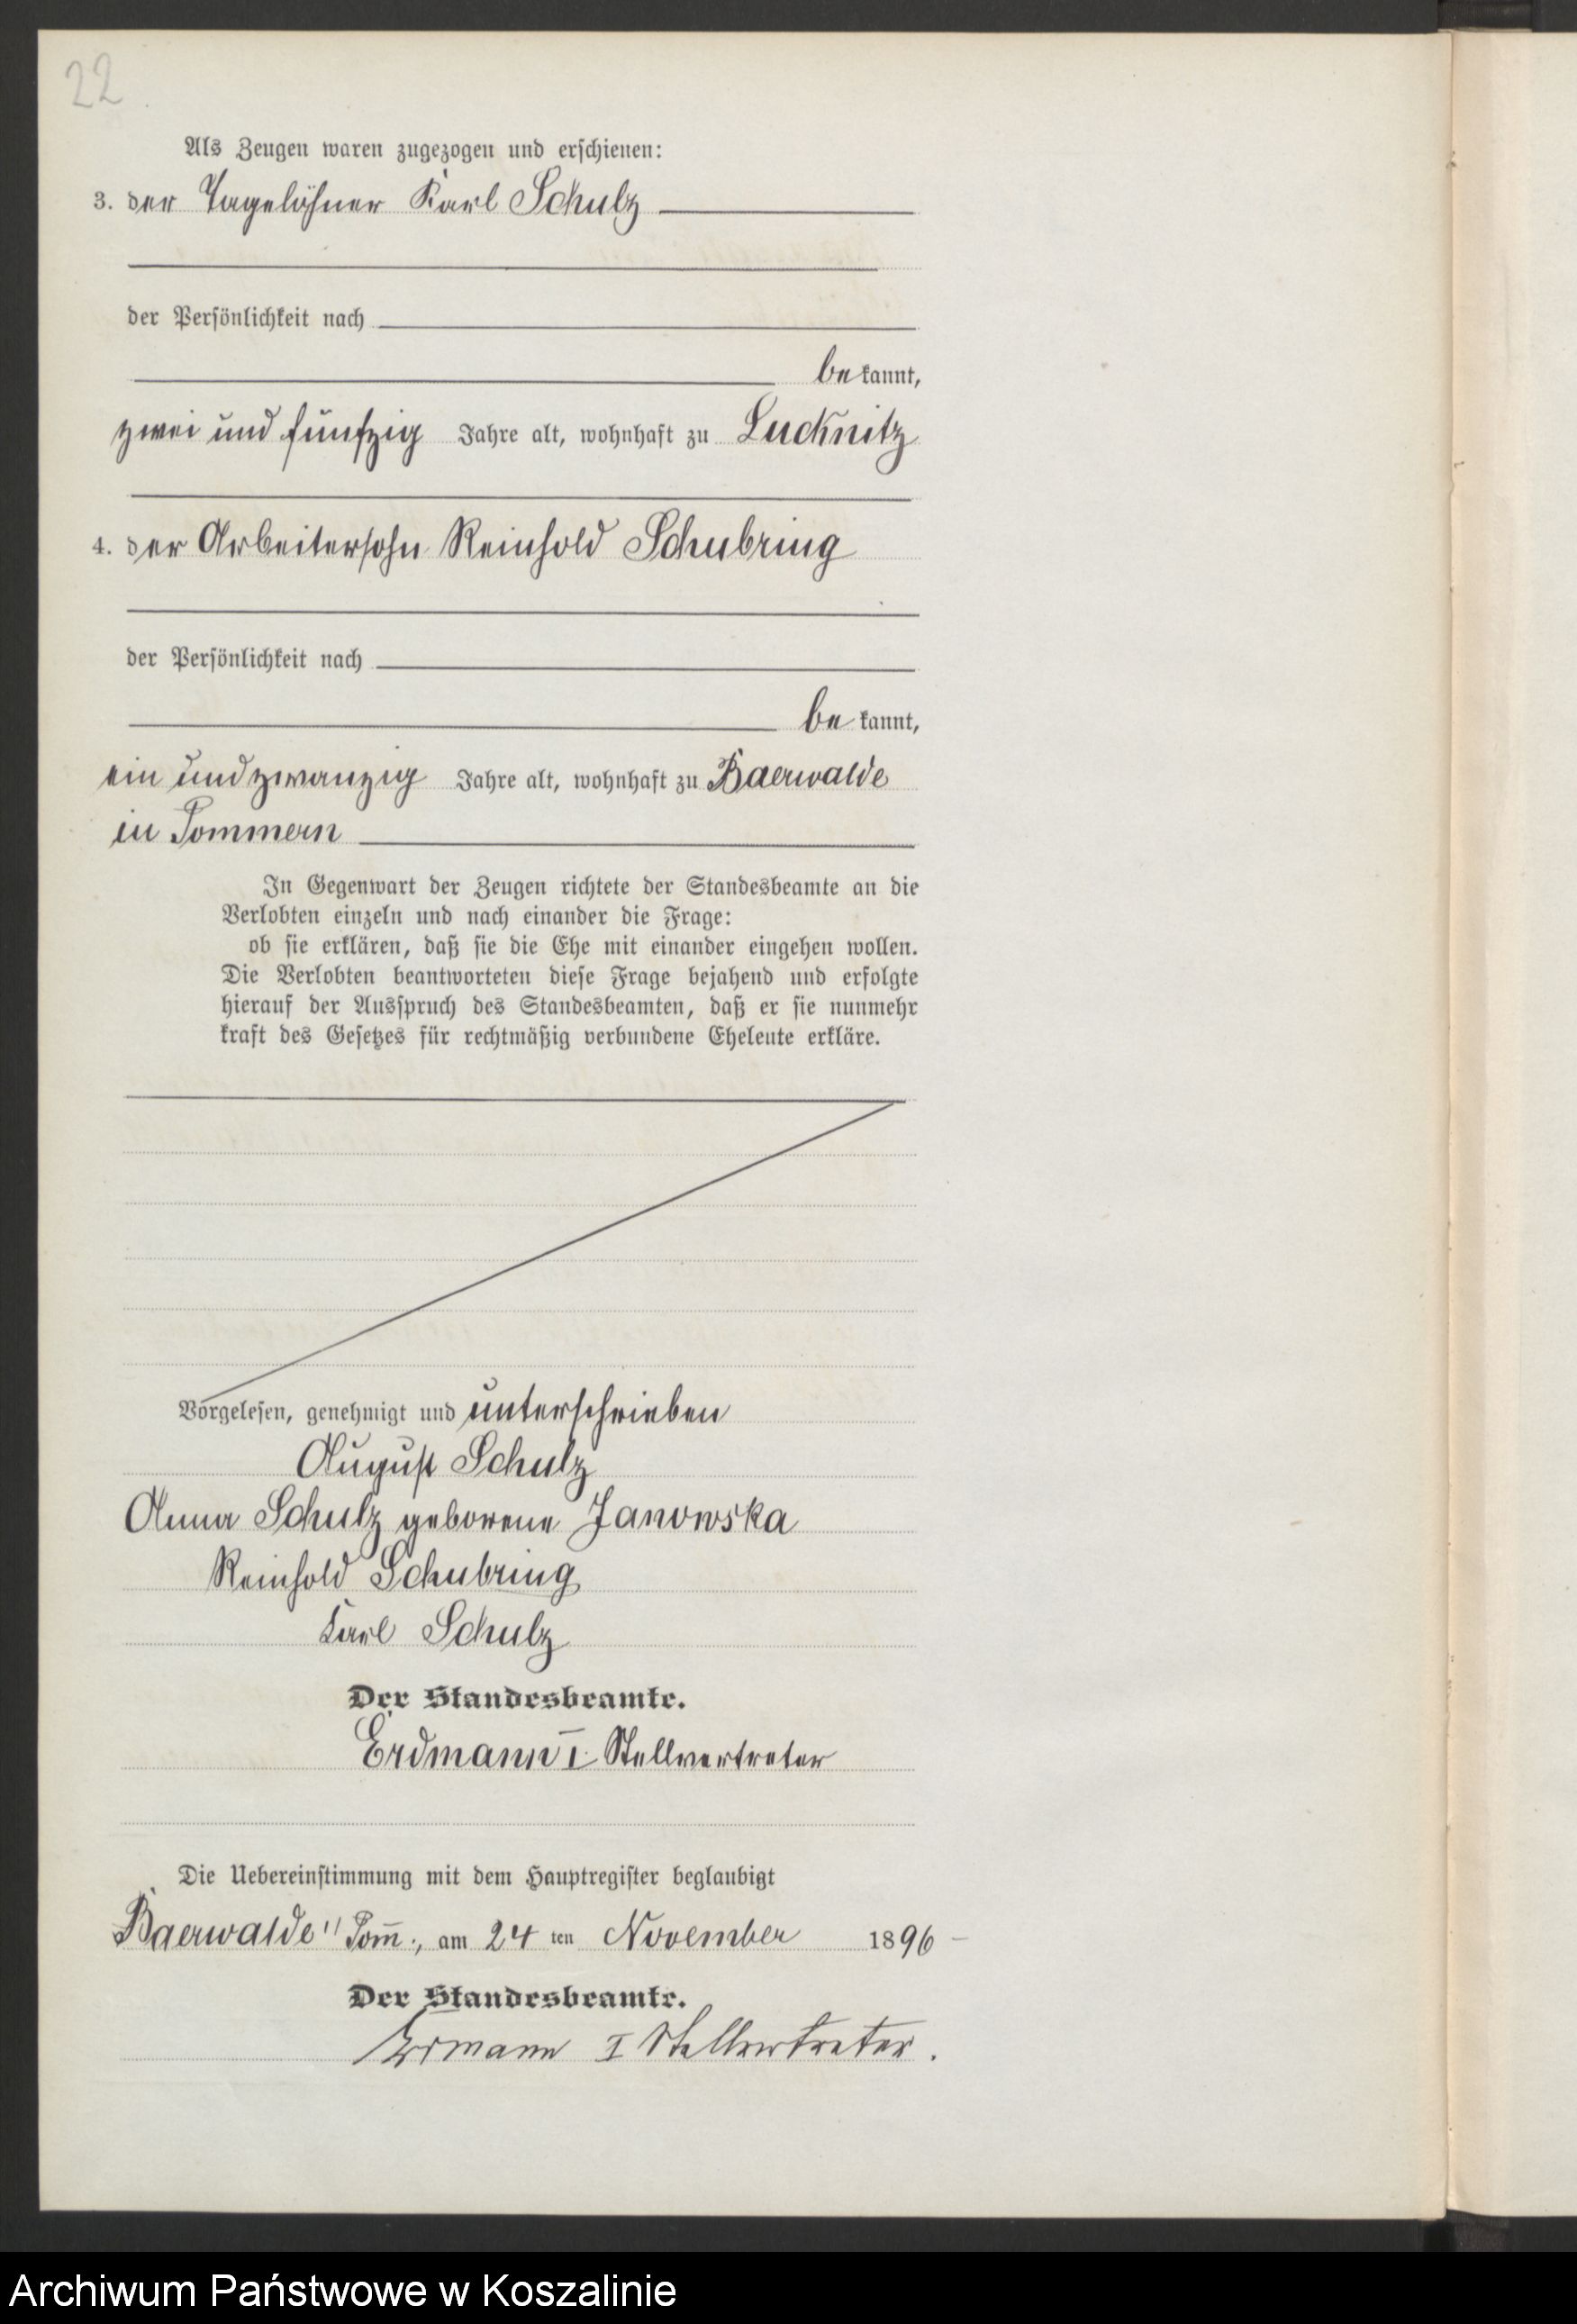 22
Als Zeugen waren zugezogen und erschienen:
3. der Tagelöhner Karl Schulz
der Persönlichkeit nach
bekannt,
zwei und fünfzig Jahre alt, wohnhaft zu Lucknitz
4. der Arbeitersohn Reinhold Schubring
der Persönlichkeit nach
bekannt,
ein und zwanzig Jahre alt, wohnhaft zu Baerwalde
in Pommern
In Gegenwart der Zeugen richtete der Standesbeamte an die
Verlobten einzeln und nach einander die Frage:
ob sie erklären, daß sie die Ehe mit einander eingehen wollen.
Die Verlobten beantworteten diese Frage bejahend und erfolgte
hierauf der Ausspruch des Standesbeamten, daß er sie nunmehr
kraft des Gesetzes für rechtmäßig verbundene Eheleute erkläre.
Vorgelesen, genehmigt und unterschrieben
August Schulz
Anna Schulz geborene Janowska
Reinhold Schubring
Karl Schulz
Der Standesbeamte.
Erdmann I. Stellvertreter
Die Uebereinstimmung mit dem Hauptregister beglaubigt
Baerwalde i/ Pom̄., am 24 ten November 1896
Der Standesbeamte.
Erdmann I Stellvertreter.
Archiwum Państwowe w Koszalinie